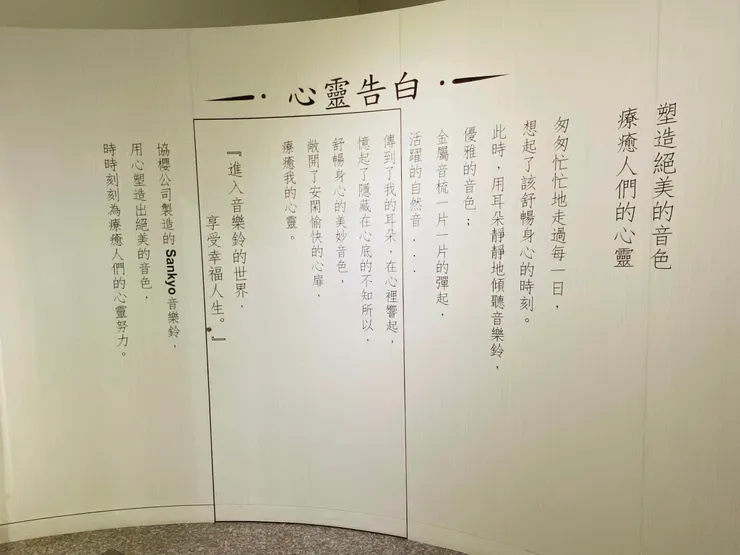 心靈告白
塑造絕美的音色
療癒人們的心靈
匆匆忙忙地走過每一日，
想起了該舒暢身心的時刻。
此時，用耳朵靜靜地傾聽音樂鈴，
優雅的音色；
金屬音梳一片一片的彈起，
活躍的自然音...
傳到了我的耳朵，在心裡響起，
憶起了隱藏在心底的不知所以，
舒暢身心的美妙音色，
敞開了安閑愉快的心扉，
療癒我的心靈。
『進入音樂鈴的世界，
享受幸福人生。』
協櫻公司製造的Sankyo音樂鈴，
用心塑造出絕美的音色，
時時刻刻為療癒人們的心靈努力。